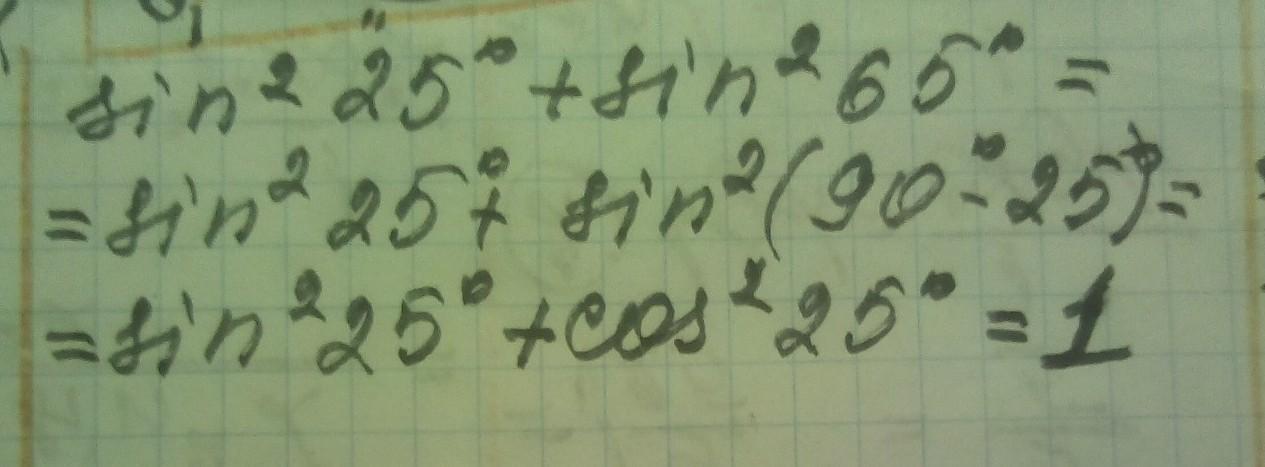 sin² 25° + sin² 65° =
= sin² 25° + sin² (90° - 25°) =
= sin² 25° + cos² 25° = 1